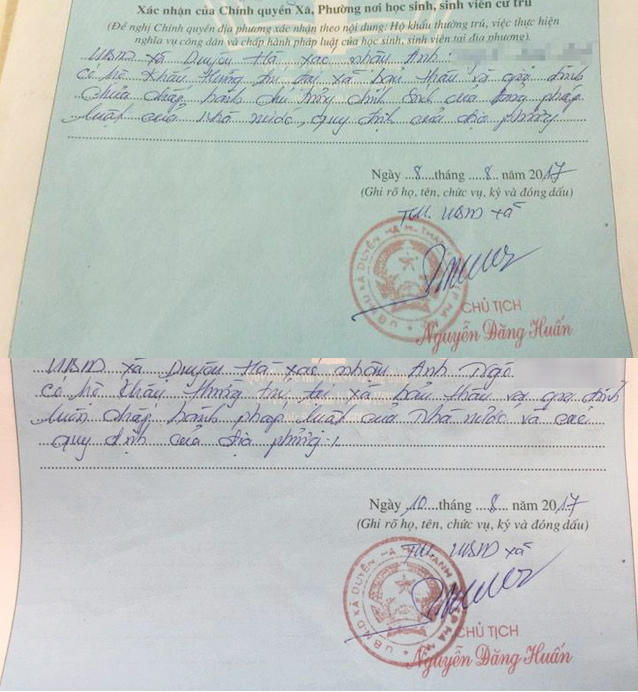 Xác nhận của Chính quyền Xã, Phường nơi học sinh, sinh viên cư trú
(Đề nghị Chính quyền địa phương xác nhận theo nội dung: Hộ khẩu thường trú, việc thực hiện
nghĩa vụ công dân và chấp hành pháp luật của học sinh, sinh viên tại địa phương).
UBND xã Duyên Hà xác nhận Anh
có hộ khẩu thường trú tại xã bản thân và gia đình
chưa chấp hành chủ trương chính sách của Đảng pháp
luật của Nhà nước, quy định của địa phương
Ngày 8 tháng 8 năm 2017
(Ghi rõ họ, tên, chức vụ, ký và đóng dấu)
TM. UBND xã
CHỦ TỊCH
Nguyễn Đăng Huấn
UBND xã Duyên Hà xác nhận Anh
có hộ khẩu thường trú tại xã bản thân và gia đình
luôn chấp hành pháp luật của Nhà nước và các
quy định của địa phương./.
Ngày 10 tháng 8 năm 2017
(Ghi rõ họ, tên, chức vụ, ký và đóng dấu)
TM. UBND xã
CHỦ TỊCH
Nguyễn Đăng Huấn